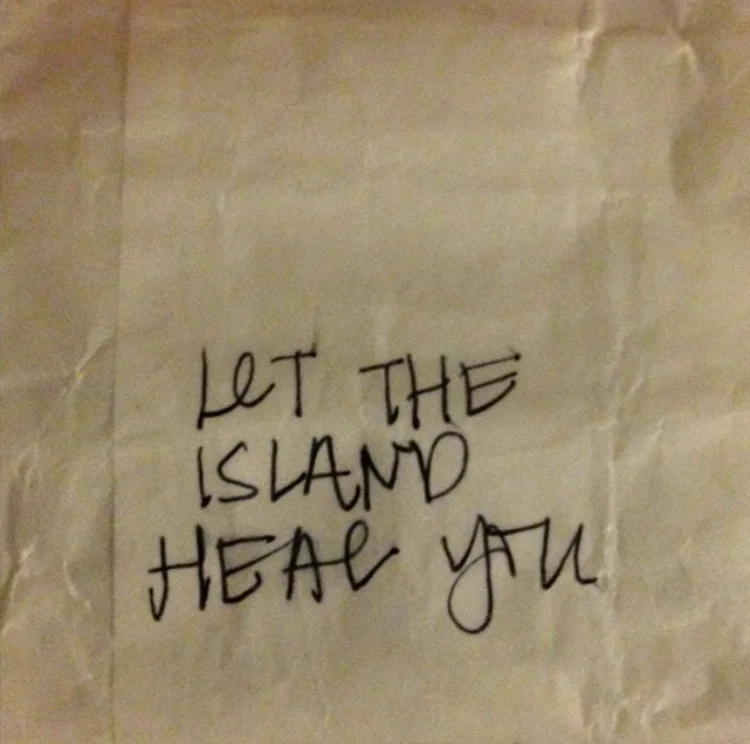 LeT THE
ISLAND
HEAL YOU